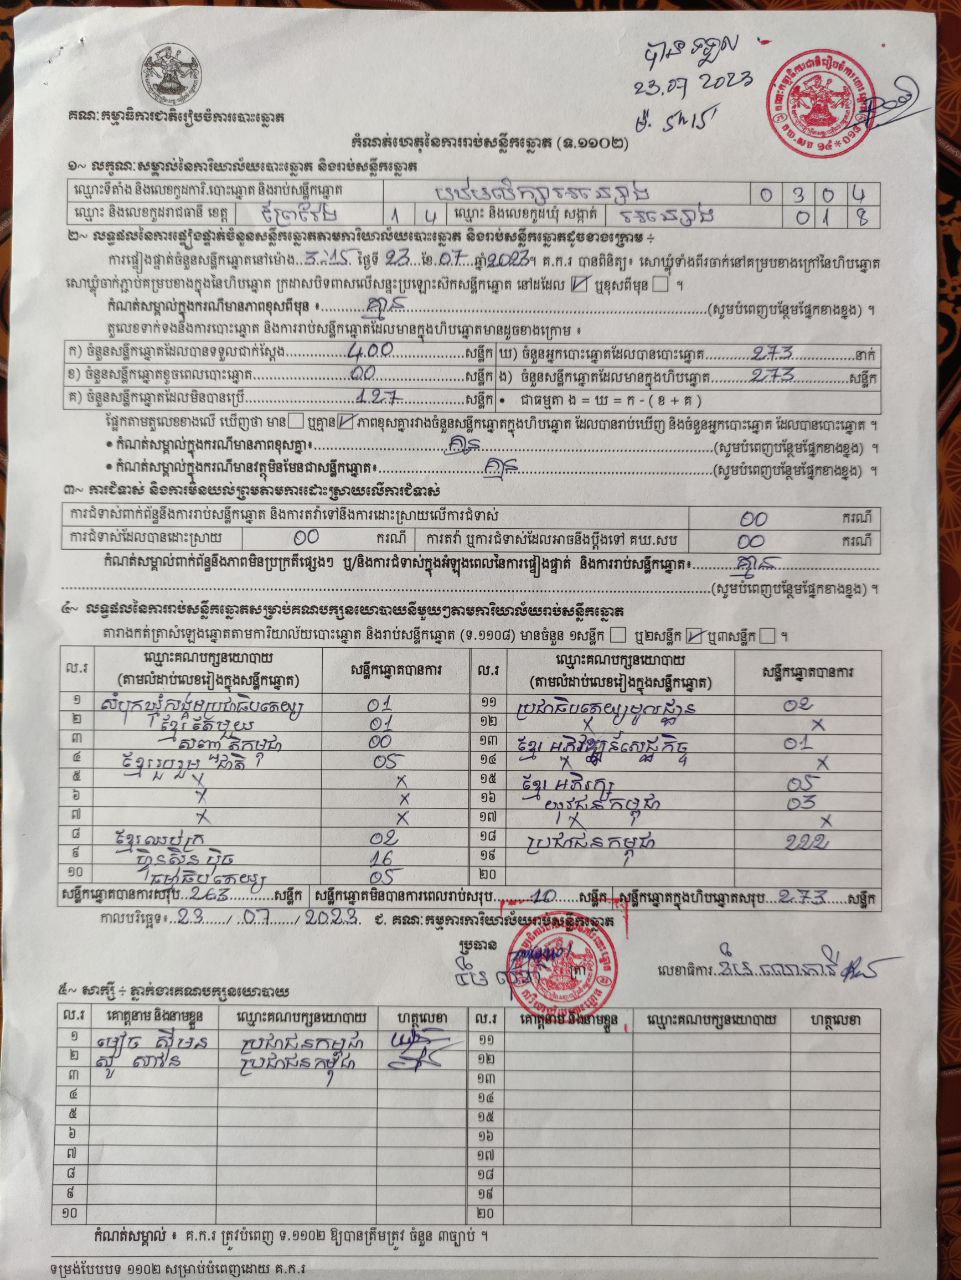 បានទទួល
23.07 2023
ម៉. ៥h15
គណៈកម្មាធិការជាតិរៀបចំការបោះឆ្នោត
កំណត់ហេតុនៃការរាប់សន្លឹកឆ្នោត (ទ.១១០២)
១~ លក្ខណៈសម្គាល់នៃការិយាល័យបោះឆ្នោត និងរាប់សន្លឹកឆ្នោត
ឈ្មោះទីតាំង និងលេខកូដការិ.បោះឆ្នោត និងរាប់សន្លឹកឆ្នោត 0 3 0 4
ឈ្មោះ និងលេខកូដរាជធានី ខេត្ត ព្រៃវែង 1 4 ឈ្មោះ និងលេខកូដឃុំ សង្កាត់ 0 1 8
២~ លទ្ធផលនៃការផ្ទៀងផ្ទាត់ចំនួនសន្លឹកឆ្នោតតាមការិយាល័យបោះឆ្នោត និងរាប់សន្លឹកឆ្នោតដូចខាងក្រោម ÷
ការផ្ទៀងផ្ទាត់ចំនួនសន្លឹកឆ្នោតនៅម៉ោង..3:15 ថ្ងៃទី 23 ខែ.07 ឆ្នាំ2023។ គ.ក.រ បានពិនិត្យ៖ សោឃ្លុំទាំងពីរចាក់នៅគម្របខាងក្រៅនៃហិបឆ្នោត
សោឃ្លុំចាក់ភ្ជាប់គម្របខាងក្នុងនៃហិបឆ្នោត ក្រដាសបិទពាសលើសន្ទះប្រឡោះស៊កសន្លឹកឆ្នោត នៅដដែល ☑ ឬខុសពីមុន ☐ ។
កំណត់សម្គាល់ក្នុងករណីមានភាពខុសពីមុន ៖ គ្មាន (សូមបំពេញបន្ថែមផ្នែកខាងខ្នង) ។
តួលេខទាក់ទងនឹងការបោះឆ្នោត និងការរាប់សន្លឹកឆ្នោតដែលមានក្នុងហិបឆ្នោតមានដូចខាងក្រោម ៖
ក) ចំនួនសន្លឹកឆ្នោតដែលបានទទួលជាក់ស្តែង 400 សន្លឹក ឃ) ចំនួនអ្នកបោះឆ្នោតដែលបានបោះឆ្នោត 273 នាក់
ខ) ចំនួនសន្លឹកឆ្នោតខូចពេលបោះឆ្នោត 00 សន្លឹក ង) ចំនួនសន្លឹកឆ្នោតដែលមានក្នុងហិបឆ្នោត 273 សន្លឹក
គ) ចំនួនសន្លឹកឆ្នោតដែលមិនបានប្រើ 127 សន្លឹក • ជាធម្មតា ង = ឃ = ក - ( ខ + គ )
ផ្អែកតាមតួលេខខាងលើ ឃើញថា មាន ☐ ឬគ្មាន ☑ ភាពខុសគ្នារវាងចំនួនសន្លឹកឆ្នោតក្នុងហិបឆ្នោត ដែលបានរាប់ឃើញ និងចំនួនអ្នកបោះឆ្នោត ដែលបានបោះឆ្នោត ។
• កំណត់សម្គាល់ក្នុងករណីមានភាពខុសគ្នា៖ គ្មាន (សូមបំពេញបន្ថែមផ្នែកខាងខ្នង) ។
• កំណត់សម្គាល់ក្នុងករណីមានវត្ថុមិនមែនជាសន្លឹកឆ្នោត៖ គ្មាន (សូមបំពេញបន្ថែមផ្នែកខាងខ្នង) ។
៣~ ការជំទាស់ និងការមិនយល់ព្រមតាមការដោះស្រាយលើការជំទាស់
ការជំទាស់ពាក់ព័ន្ធនឹងការរាប់សន្លឹកឆ្នោត និងការតវ៉ាទៅនឹងការដោះស្រាយលើការជំទាស់ 00 ករណី
ការជំទាស់ដែលបានដោះស្រាយ 00 ករណី ការតវ៉ា ឬការជំទាស់ដែលអាចនឹងប្តឹងទៅ គឃ.សប 00 ករណី
កំណត់សម្គាល់ពាក់ព័ន្ធនឹងភាពមិនប្រក្រតីផ្សេងៗ ឬ/និងការជំទាស់ក្នុងអំឡុងពេលនៃការផ្ទៀងផ្ទាត់ និងការរាប់សន្លឹកឆ្នោត៖ គ្មាន
(សូមបំពេញបន្ថែមផ្នែកខាងខ្នង) ។
៤~ លទ្ធផលនៃការរាប់សន្លឹកឆ្នោតសម្រាប់គណបក្សនយោបាយនីមួយៗតាមការិយាល័យរាប់សន្លឹកឆ្នោត
តារាងកត់ត្រាសំឡេងឆ្នោតតាមការិយាល័យបោះឆ្នោត និងរាប់សន្លឹកឆ្នោត (ទ.១១០៨) មានចំនួន ១សន្លឹក ☐ ឬ២សន្លឹក ☑ ឬ៣សន្លឹក ☐ ។
ល.រ ឈ្មោះគណបក្សនយោបាយ (តាមលំដាប់លេខរៀងក្នុងសន្លឹកឆ្នោត) សន្លឹកឆ្នោតបានការ ល.រ ឈ្មោះគណបក្សនយោបាយ (តាមលំដាប់លេខរៀងក្នុងសន្លឹកឆ្នោត) សន្លឹកឆ្នោតបានការ
១ សំបុកឃ្មុំសង្គមប្រជាធិបតេយ្យ 01 ១១ ប្រជាធិបតេយ្យមូលដ្ឋាន 02
២ ខ្មែរតែមួយ 01 ១២ x x
៣ សញ្ជាតិកម្ពុជា 00 ១៣ ខ្មែរ អភិវឌ្ឍន៍សេដ្ឋកិច្ច 01
៤ ខ្មែររួបរួមជាតិ 05 ១៤ x x
៥ x x ១៥ ខ្មែរ អភិរក្ស 05
៦ x x ១៦ យុវជនកម្ពុជា 03
៧ x x ១៧ x x
៨ ខ្មែរឈប់ក្រ 02 ១៨ ប្រជាជនកម្ពុជា 222
៩ ហ៊្វុនស៊ិនប៉ិច 16 ១៩
១០ ធម្មាធិបតេយ្យ 05 ២០
សន្លឹកឆ្នោតបានការសរុប 263 សន្លឹក សន្លឹកឆ្នោតមិនបានការពេលរាប់សរុប 10 សន្លឹក សន្លឹកឆ្នោតក្នុងហិបឆ្នោតសរុប 273 សន្លឹក
កាលបរិច្ឆេទ៖ 23 / 07 / 2023 ជ. គណៈកម្មការការិយាល័យរាប់សន្លឹកឆ្នោត
ប្រធាន
លេខាធិការ
៥~ សាក្សី ÷ ភ្នាក់ងារគណបក្សនយោបាយ
ល.រ គោត្តនាម និងនាមខ្លួន ឈ្មោះគណបក្សនយោបាយ ហត្ថលេខា ល.រ គោត្តនាម និងនាមខ្លួន ឈ្មោះគណបក្សនយោបាយ ហត្ថលេខា
១ ស៊ីមន ប្រជាជនកម្ពុជា ១១
២ សូ សាវន ប្រជាជនកម្ពុជា ១២
៣ ១៣
៤ ១៤
៥ ១៥
៦ ១៦
៧ ១៧
៨ ១៨
៩ ១៩
១០ ២០
កំណត់សម្គាល់ ៖ គ.ក.រ ត្រូវបំពេញ ទ.១១០២ ឱ្យបានត្រឹមត្រូវ ចំនួន ៣ច្បាប់ ។
ទម្រង់បែបបទ ១១០២ សម្រាប់បំពេញដោយ គ.ក.រ